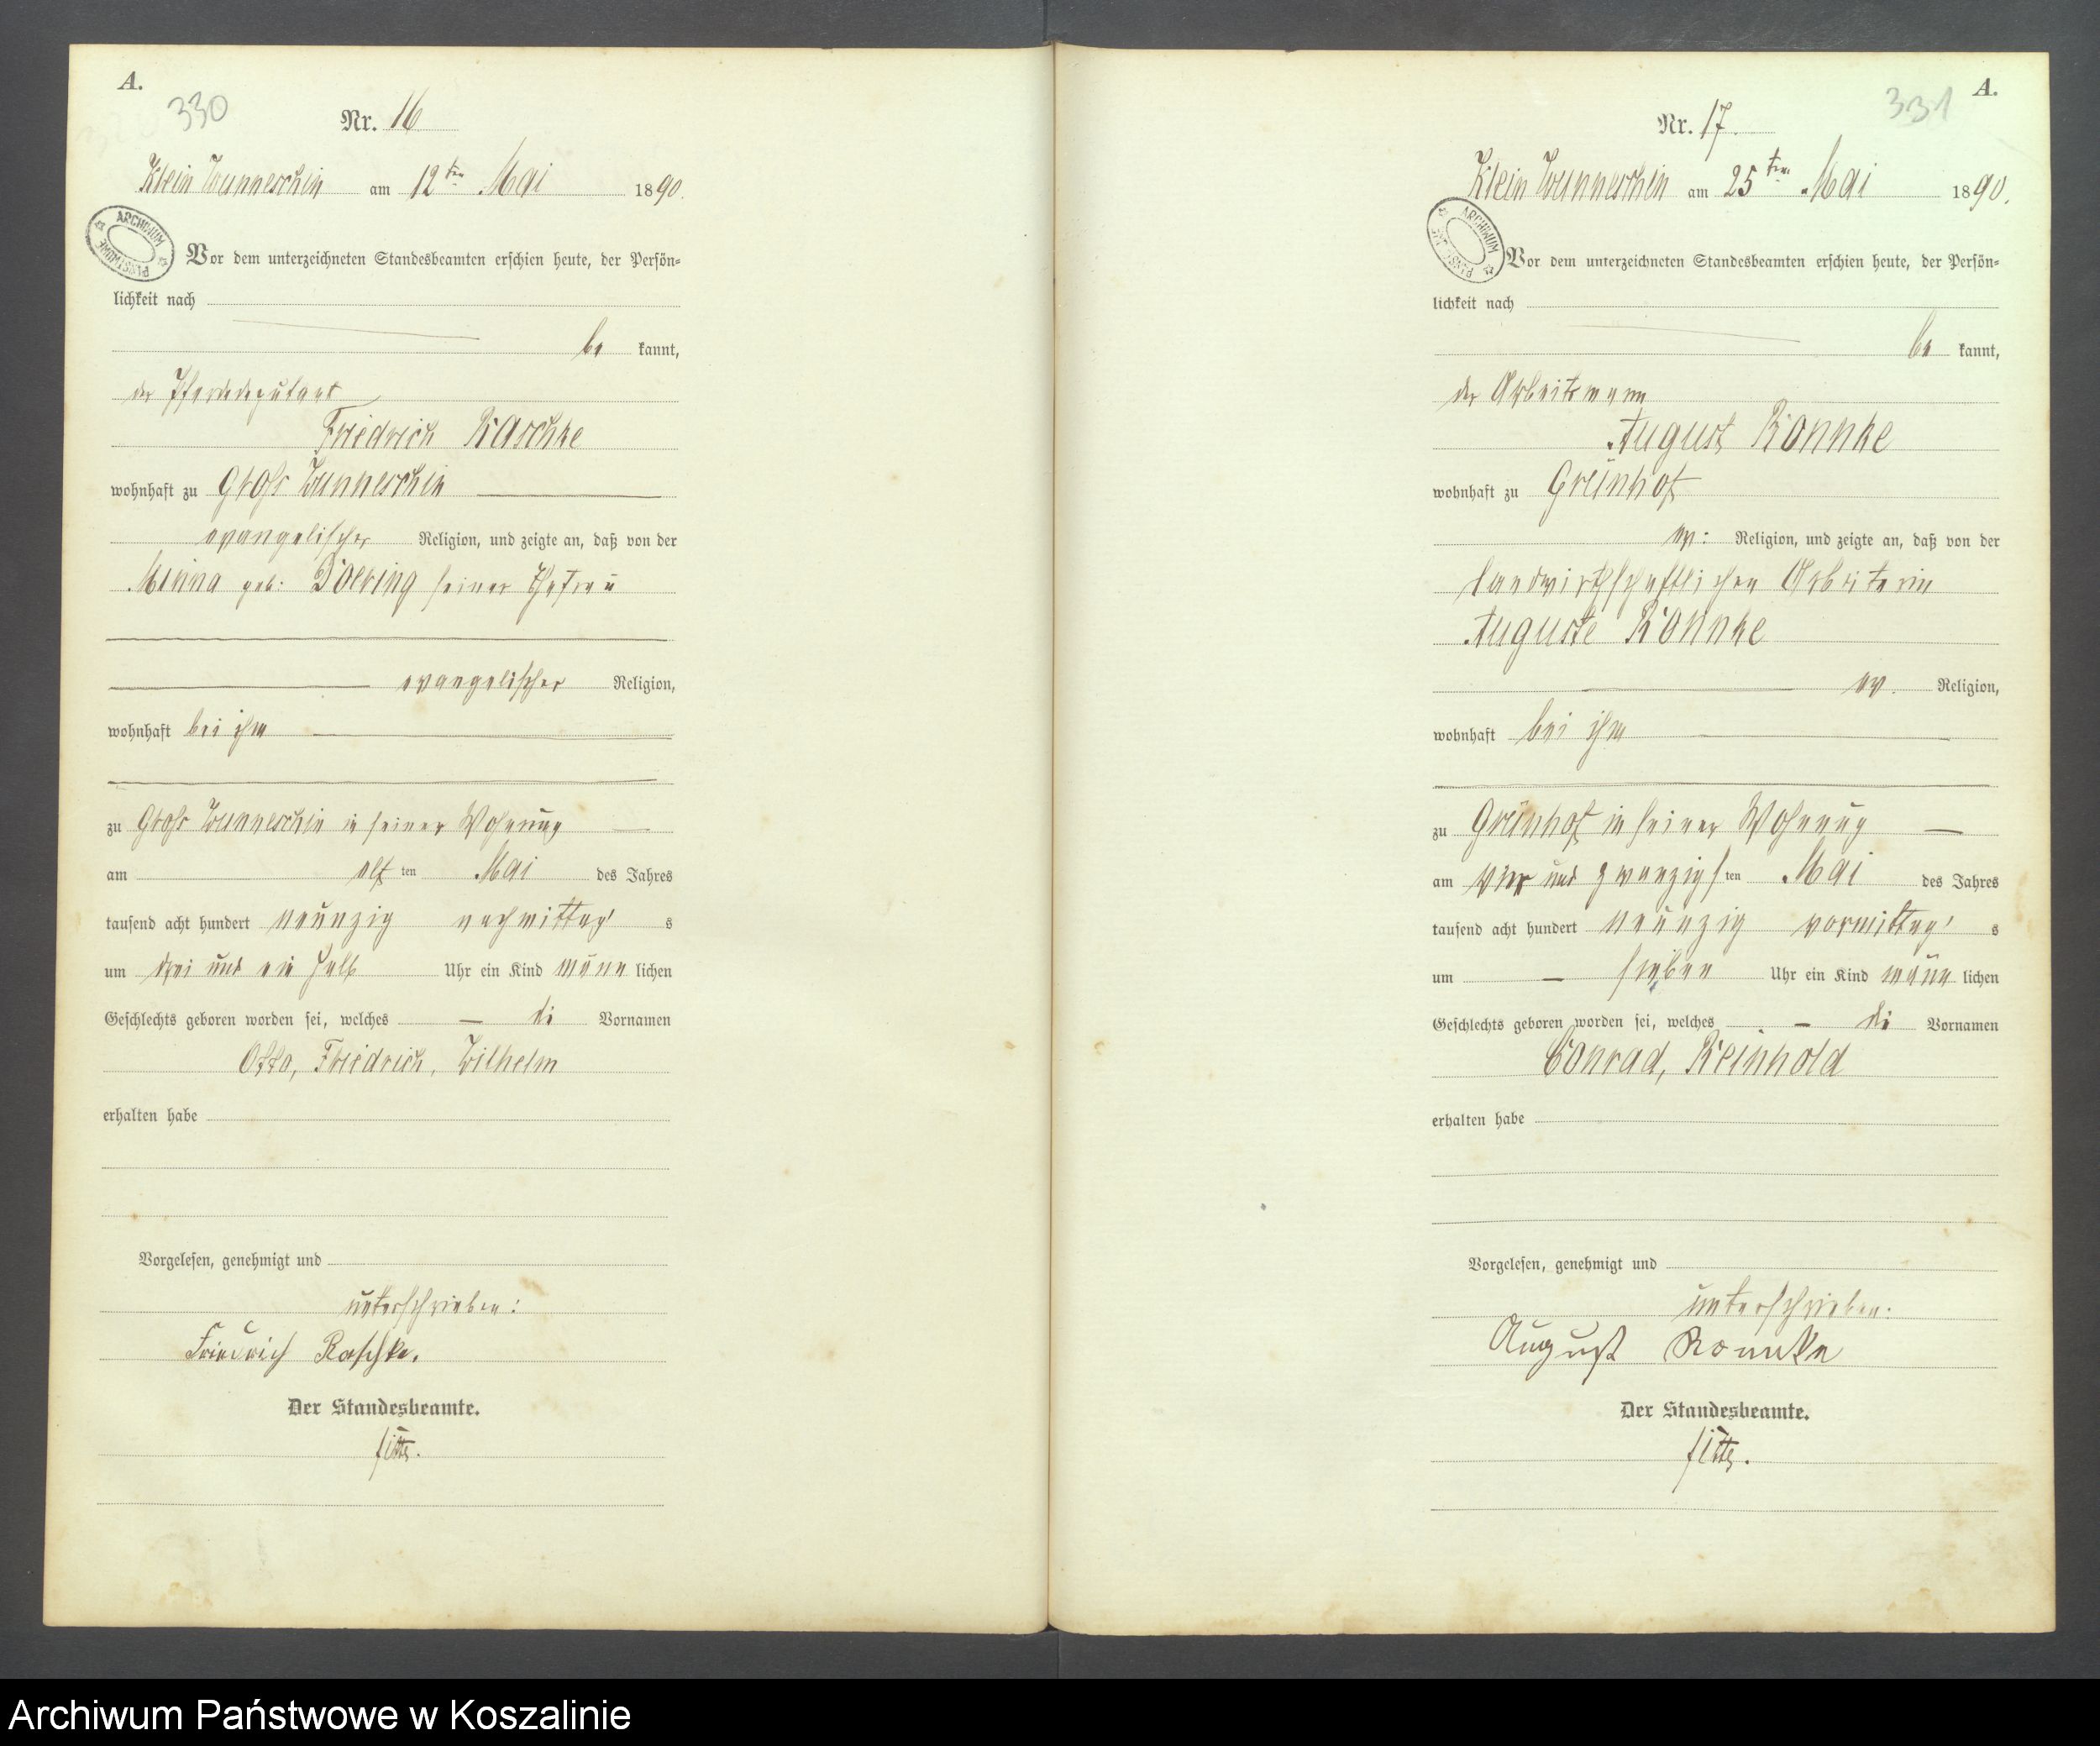 A.
330
Nr. 16
Klein Wunneschin am 12ten Mai 1890.
ARCHIWUM PAŃSTWOWE
Vor dem unterzeichneten Standesbeamten erschien heute, der Persön-
lichkeit nach
be kannt,
der Pferdedeputant
Friedrich Raschke
wohnhaft zu Groß Wunneschin
evangelischer Religion, und zeigte an, daß von der
Minna geb: Doering seiner Ehefrau
evangelischer Religion,
wohnhaft bei ihm
zu Groß Wunneschin in seiner Wohnung
am elf ten Mai des Jahres
tausend acht hundert neunzig nachmittag s
um drei und ein halb Uhr ein Kind männ lichen
Geschlechts geboren worden sei, welches di Vornamen
Otto, Friedrich, Wilhelm
erhalten habe
Vorgelesen, genehmigt und
unterschrieben:
Friedrich Raschke.
Der Standesbeamte.
A.
331
Nr. 17.
Klein Wunneschin am 25ten Mai 1890.
ARCHIWUM
Vor dem unterzeichneten Standesbeamten erschien heute, der Persön-
lichkeit nach
be kannt,
der Arbeitsmann
August Ronnke
wohnhaft zu Grünhof
ev: Religion, und zeigte an, daß von der
landwirthschaftlichen Arbeiterin
Auguste Ronnke
ev. Religion,
wohnhaft bei ihm
zu Grünhof in seiner Wohnung
am vier und zwanzigs ten Mai des Jahres
tausend acht hundert neunzig vormittag s
um sieben Uhr ein Kind männ lichen
Geschlechts geboren worden sei, welches di Vornamen
Conrad, Reinhold
erhalten habe
Vorgelesen, genehmigt und
unterschrieben:
August Ronnke
Der Standesbeamte.
Archiwum Państwowe w Koszalinie